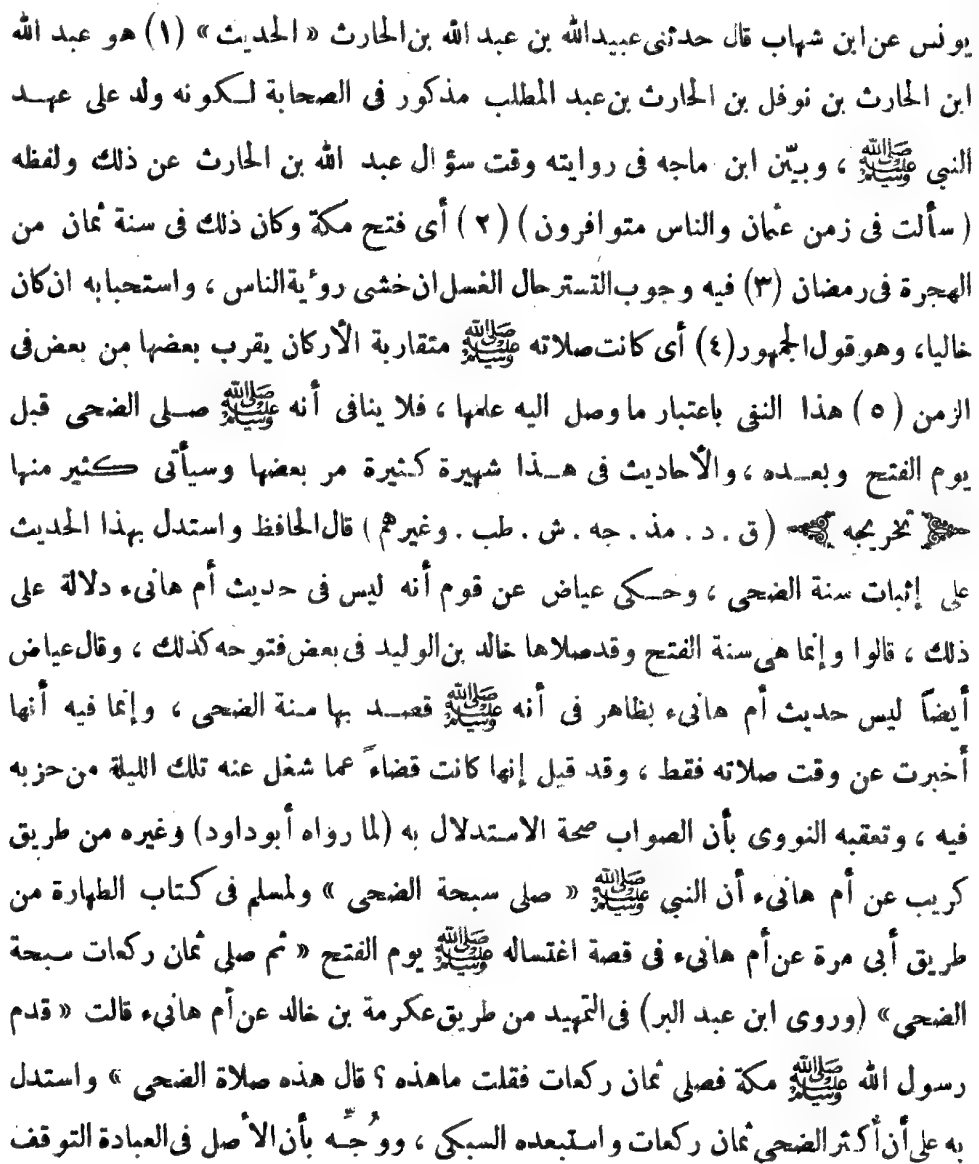 يونس عن ابن شهاب قال حدثنى عبيدالله بن عبد الله بن الحارث « الحديث » (١) هو عبد الله
ابن الحارث بن نوفل بن الحارث بن عبد المطلب مذكور فى الصحابة لكونه ولد على عهد
النبي ﷺ ، وبيّن ابن ماجه فى روايته وقت سؤال عبد الله بن الحارث عن ذلك ولفظه
( سألت فى زمن عثمان والناس متوافرون ) (٢) أى فتح مكة وكان ذلك فى سنة ثمان من
الهجرة فى رمضان (٣) فيه وجوب التستر حال الغسل ان خشى رؤية الناس ، واستحبابه ان كان
خاليا، وهو قول الجمهور (٤) أى كانت صلاته ﷺ متقاربة الأركان يقرب بعضها من بعض فى
الزمن (٥) هذا النفى باعتبار ما وصل اليه علمها ، فلا ينافى أنه ﷺ صلى الضحى قبل
يوم الفتح وبعده ، والأحاديث فى هذا شهيرة كثيرة مر بعضها وسيأتى كثير منها
﴿ تخريجه ﴾ ( ق . د . مذ . جه . ش . طب . وغيرهم ) قال الحافظ واستدل بهذا الحديث
على إثبات سنة الضحى ، وحكى عياض عن قوم أنه ليس فى حديث أم هانىء دلالة على
ذلك ، قالوا وإنما هى سنة الفتح وقد صلاها خالد بن الوليد فى بعض فتوحه كذلك ، وقال عياض
أيضاً ليس حديث أم هانىء بظاهر فى أنه ﷺ قصد بها سنة الضحى ، وإنما فيه أنها
أخبرت عن وقت صلاته فقط ، وقد قيل إنها كانت قضاءً عما شغل عنه تلك الليلة من حزبه
فيه ، وتعقبه النووى بأن الصواب صحة الاستدلال به (لما رواه أبو داود) وغيره من طريق
كريب عن أم هانىء أن النبي ﷺ « صلى سبحة الضحى » ولمسلم فى كتاب الطهارة من
طريق أبى مرة عن أم هانىء فى قصة اغتساله ﷺ يوم الفتح « ثم صلى ثمان ركعات سبحة
الضحى» (وروى ابن عبد البر) فى التمهيد من طريق عكرمة بن خالد عن أم هانىء قالت « قدم
رسول الله ﷺ مكة فصلى ثمان ركعات فقلت ماهذه ؟ قال هذه صلاة الضحى » واستدل
به على أن أكثر الضحى ثمان ركعات واستبعده السبكى ، ووُجِّه بأن الأصل فى العبادة التوقف